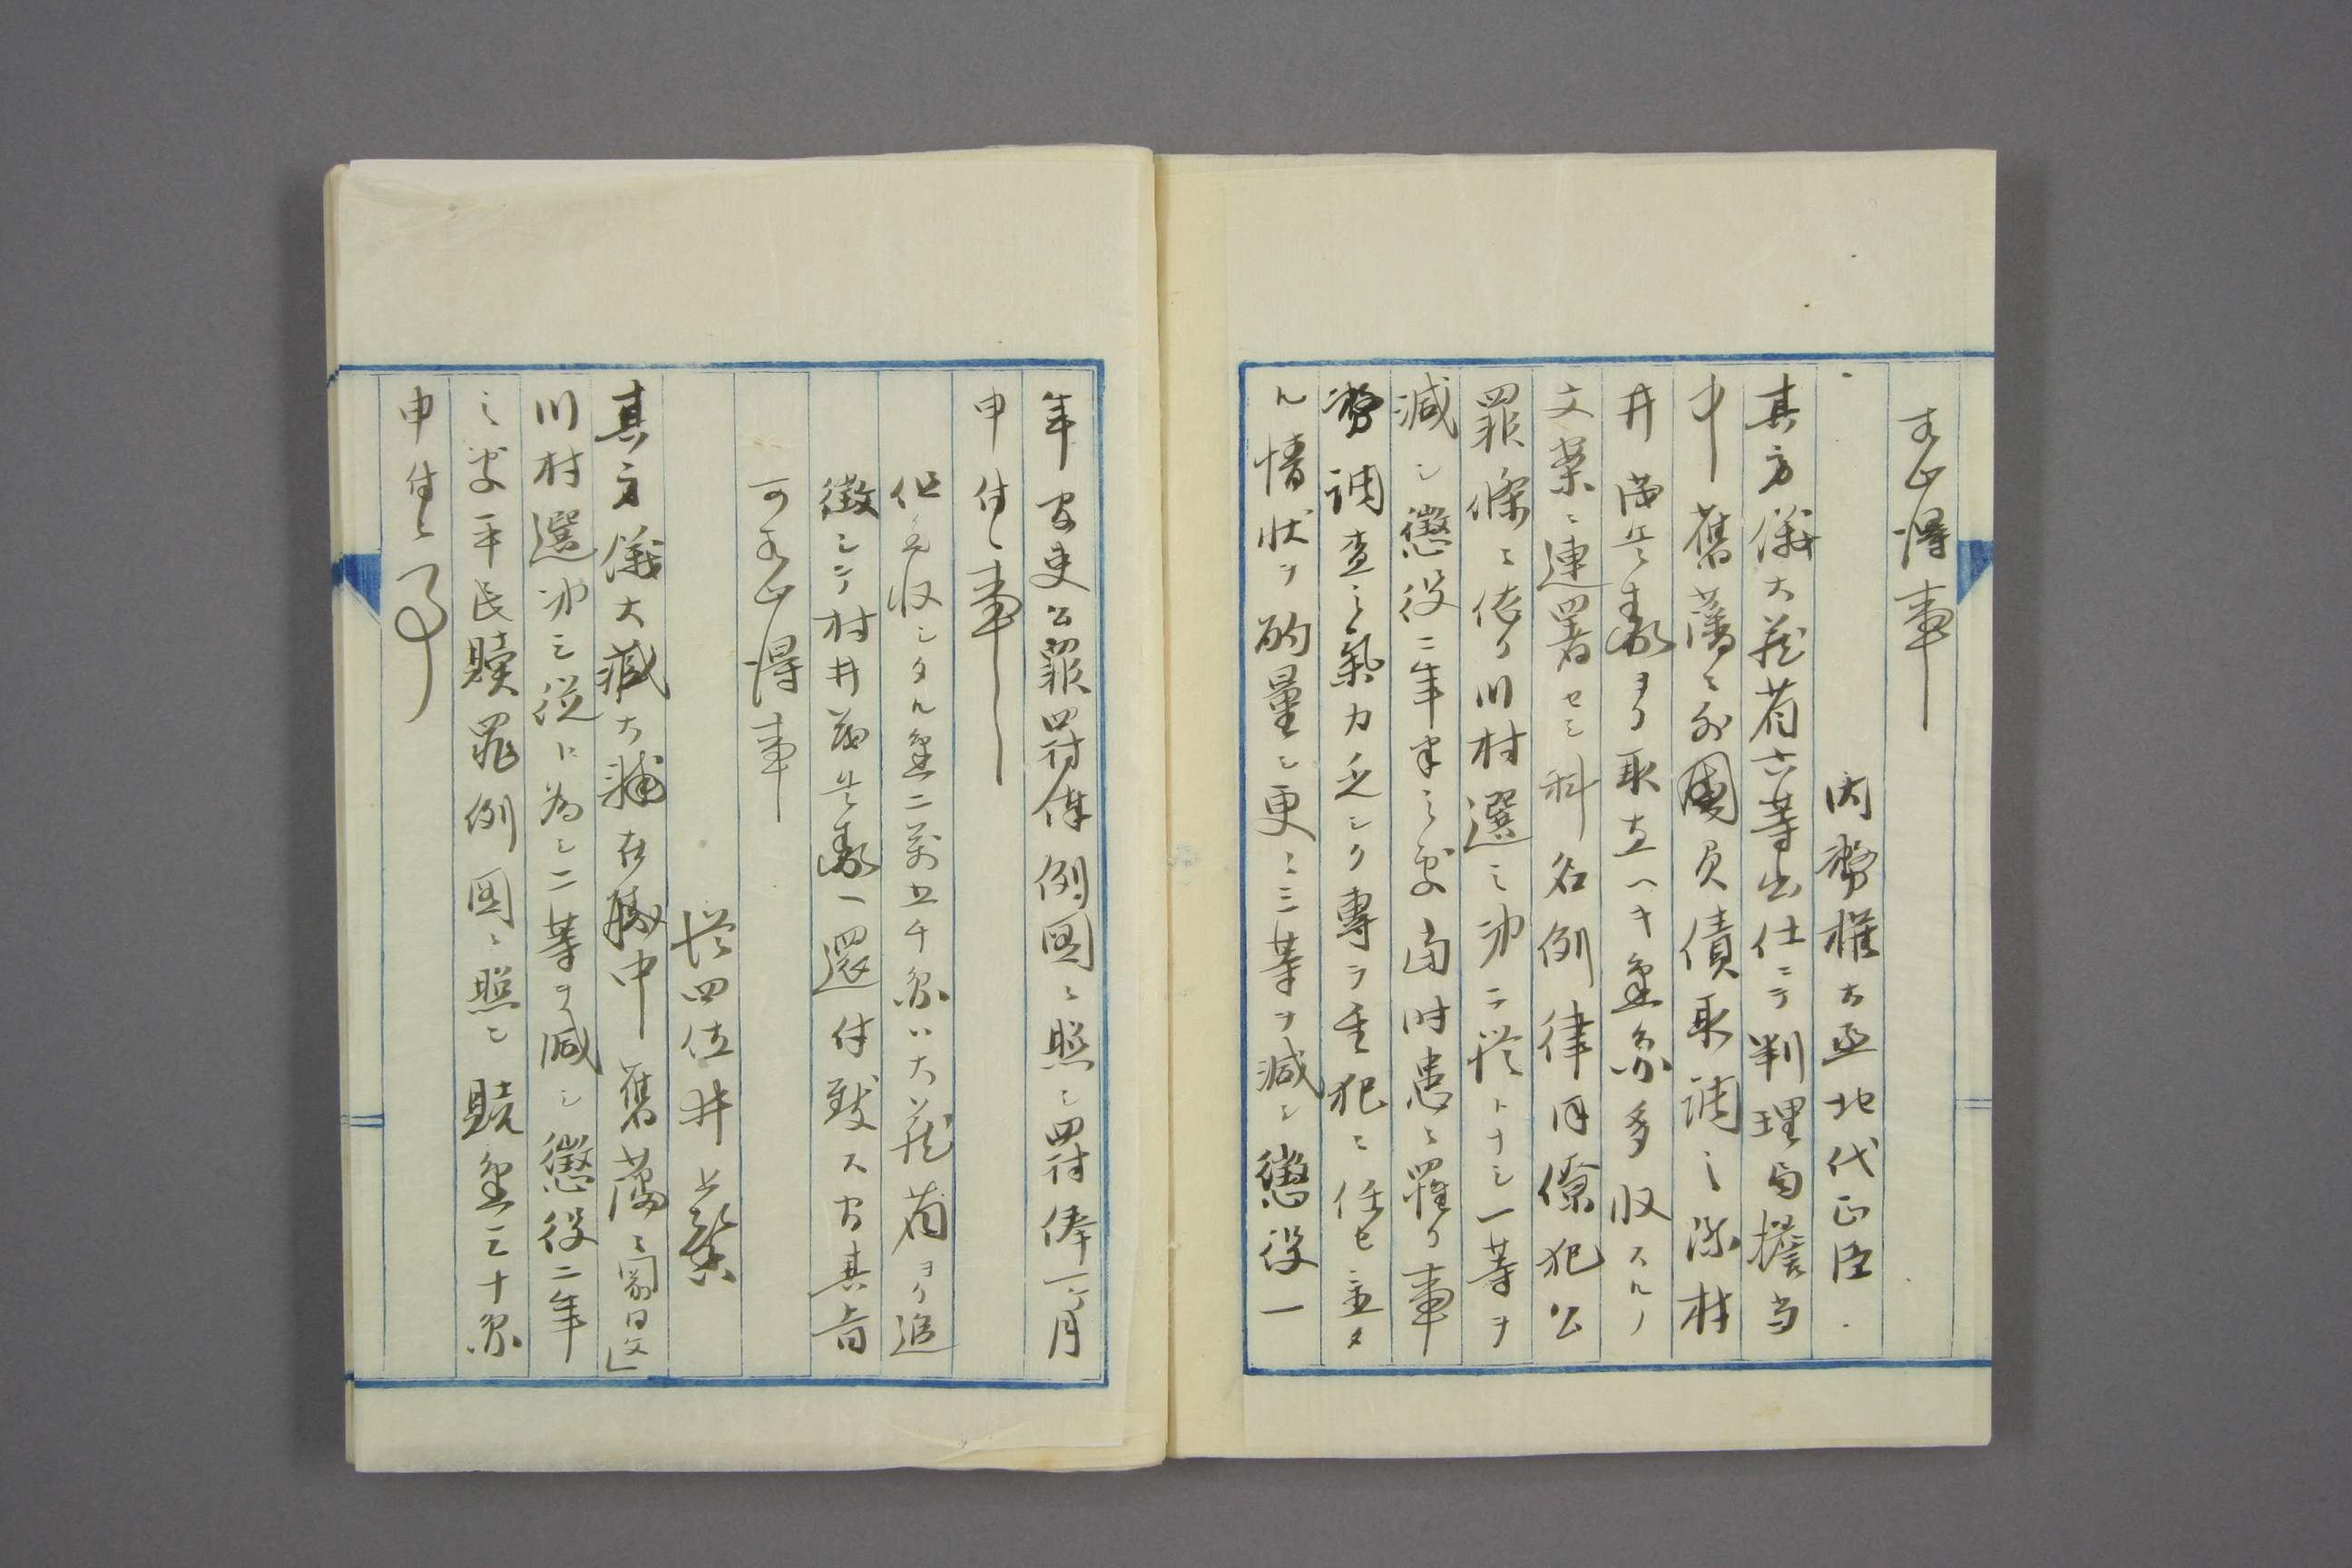 可心得事
内務権大丞北代正臣
其方儀大蔵省六等出仕ニテ判理局担当
中舊藩々外國負債取調之際村
井茂兵衛ヨリ取立ヘキ金円多収スルノ
文案ニ連署セシ科名例律同僚犯公
罪條ニ依リ川村選之次ニ従トナシ一等ヲ
減シ懲役二年半之処当時患ニ罹リ事
務調査之氣力乏シク専ラ重犯ニ任セ立タ
ル情状ヲ酌量シ更ニ三等ヲ減シ懲役一
年官吏公罪罰俸例図ニ照シ罰俸一ケ月
申付候事
但多収シタル金二万五千円ハ大蔵省ヨリ追
徴シテ村井茂兵衛ヘ還付致ス間其旨
可心得事
従四位井上馨
其方儀大蔵大輔在職中舊藩々「同文」
川村選次ニ従ト為シ二等ヲ減シ懲役二年
之処平民贖罪例図ニ照シ贖金三十円
申付候事